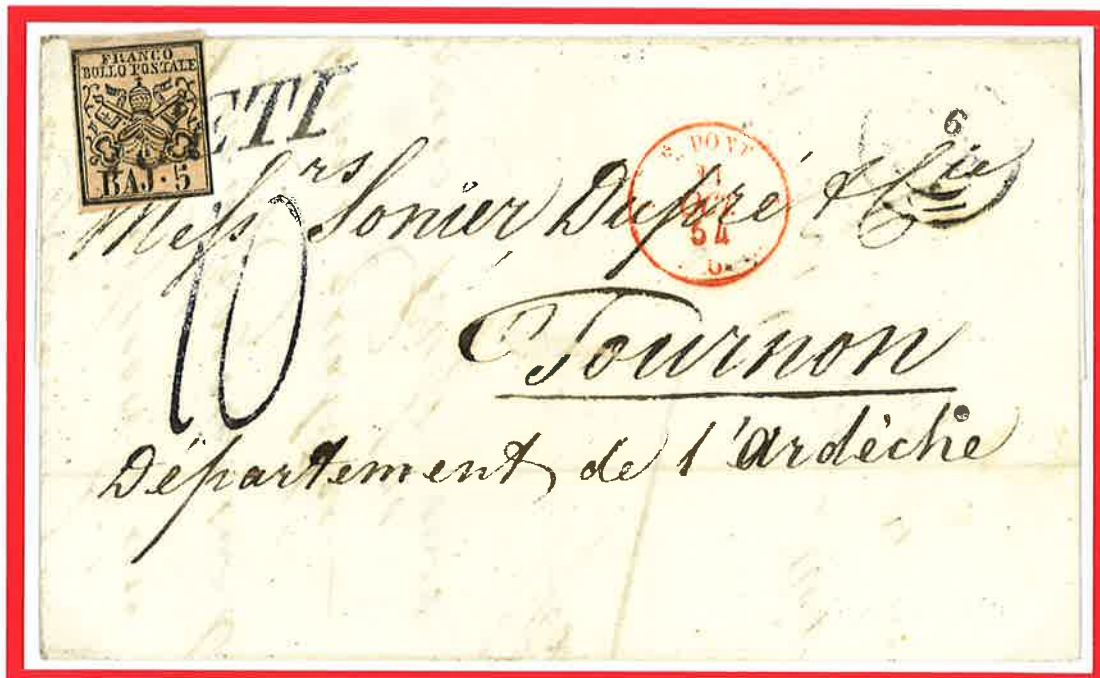 FRANCO
BOLLO POSTALE
BAJ·5
ETI
6
E. PONT
11
OCT.
54
Messrs Sonier Dupré & Cie
10
Tournon
Département de l'ardèche